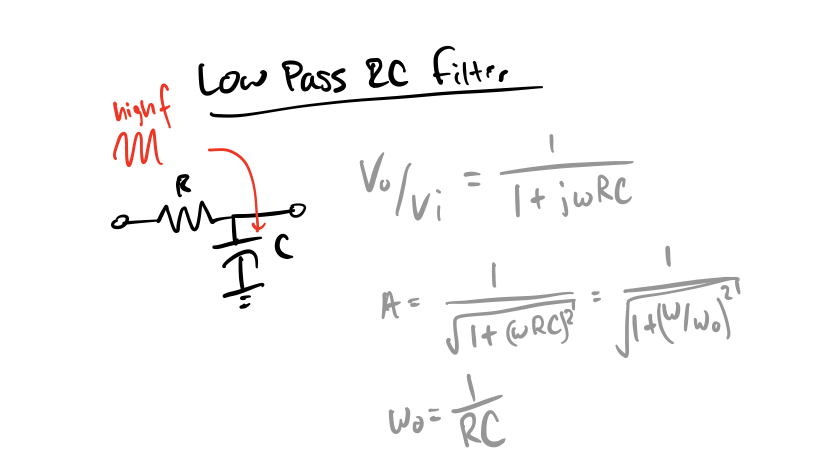 Low Pass RC Filter
high f
R
C
Vo/Vi = 1/(1 + jωRC)
A = 1/√(1+(ωRC)²) = 1/√(1+(ω/ω₀)²)
ω₀ = 1/RC